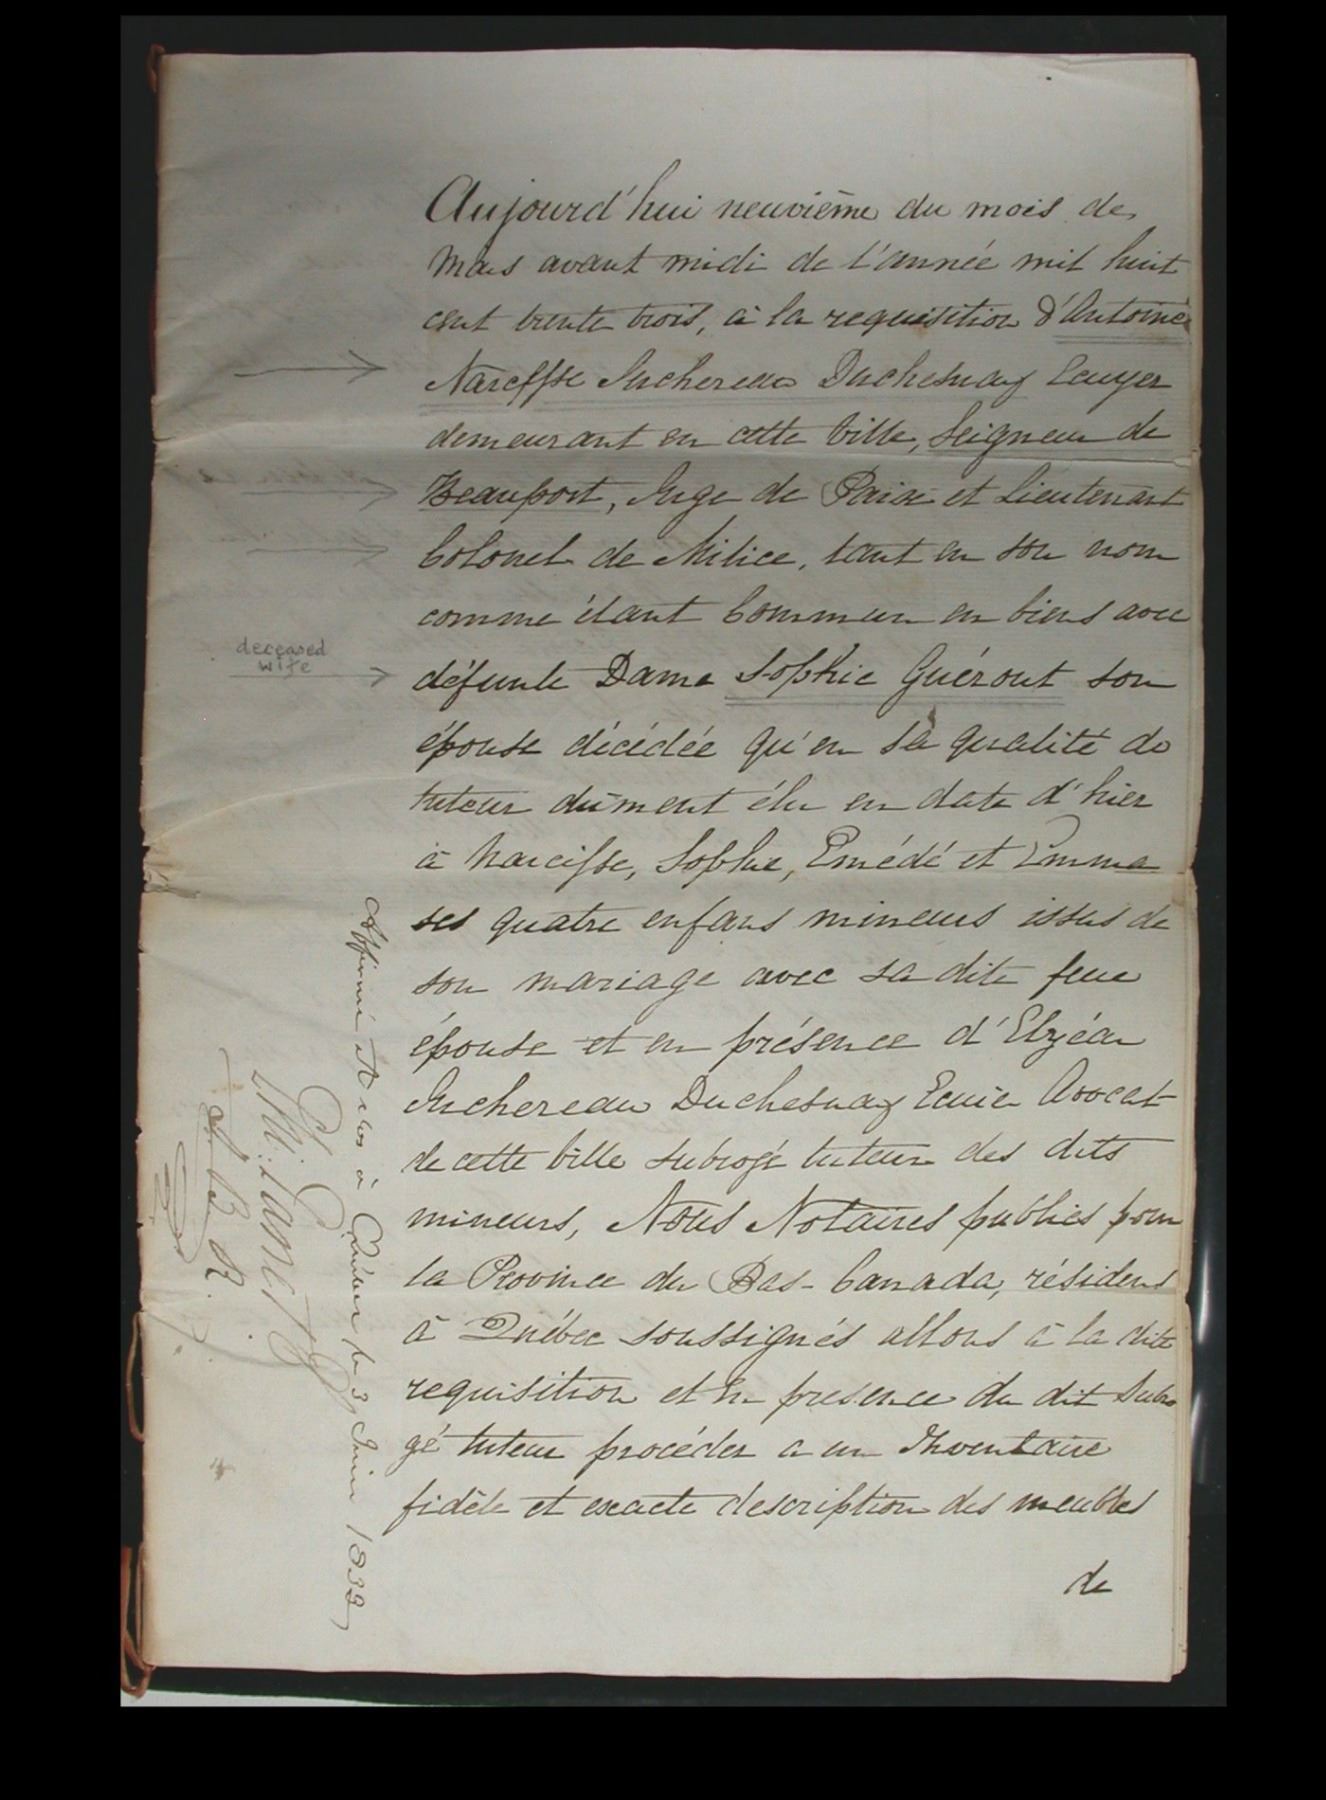 Aujourd'hui neuvième du mois de
Mars avant midi de l'année mil huit
cent trente trois, à la requisition d'Antoine
Narcisse Juchereau Duchesnay Ecuyer
demeurant en cette ville, Seigneur de
Beauport, Juge de Paix et Lieutenant
Colonel de Milice, tant en son nom
comme étant Commun en biens avec
deceased
wife
défunte Dame Sophie Guérout son
épouse décédée qu'en sa qualité de
tuteur dûment élu en date d'hier
à Narcisse, Sophie, Emédé et Emma
ses quatre enfans mineurs issus de
son mariage avec sa dite feue
épouse et en présence d'Elzéar
Juchereau Duchesnay Ecuier Avocat
de cette ville subrogé tuteur des dits
mineurs, Nous Notaires publics pour
la Province du Bas-Canada, résidens
à Québec soussignés allons à la dite
requisition et en presence du dit Subro
gé tuteur procéder a un Inventaire
fidèle et exacte description des meubles
de
Affirmé et clos à Québec le 3 Juin 1833
Ph: Panet
J. B. R.